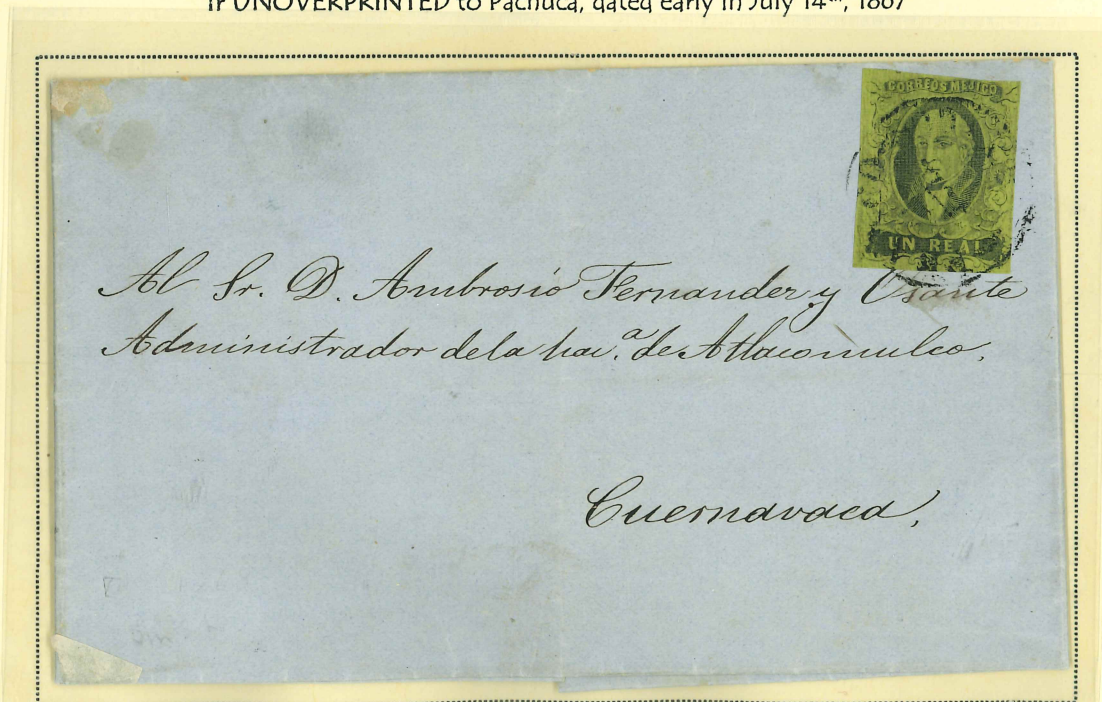 If UNOVERPRINTED to Pachuca, dated early in July 14th, 1867
CORREOS MEJICO
UN REAL
Al Sr. D. Ambrosio Fernander y Usante
Administrador de la hai.a de Atlacomulco.
Cuernavaca.